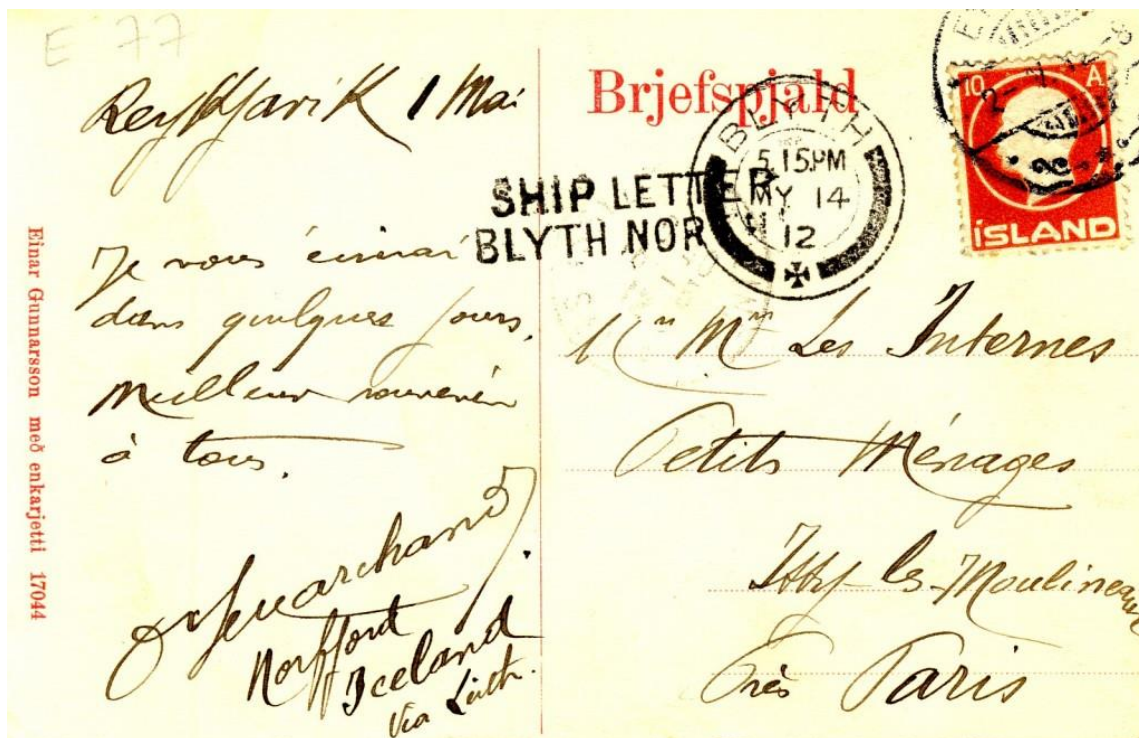 E 77
Reykjavik 1 Mai
Je vous écrirai
dans quelques jours.
Meilleur souvenir
à tous.
Iceland
Via Leith.
Einar Gunnarsson með enkarjetti 17044
Brjefspjald
SHIP LETTER
BLYTH NOR
BLYTH
5.15PM
MY 14
12
10 A.
ÍSLAND
Les Internes
Petits Ménages
Issy les Moulineaux
Près Paris